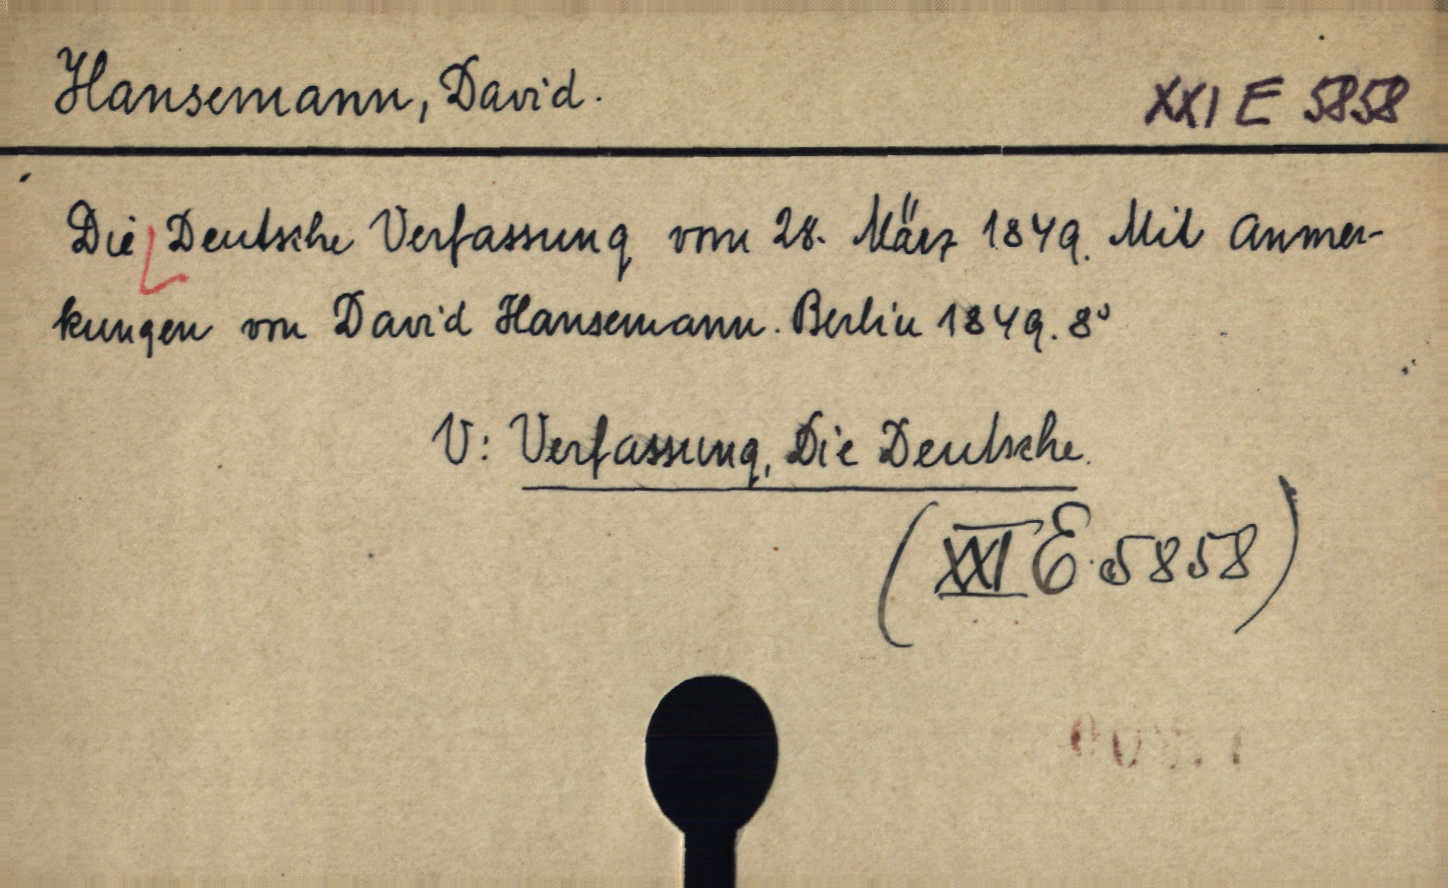 Hansemann, David.
XXI E 5858
Die Deutsche Verfassung vom 28. März 1849. Mit Anmer-
kungen von David Hansemann. Berlin 1849. 8°
V: Verfassung, Die Deutsche.
(XXI E. 5858)